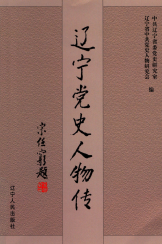 中共辽宁省委党史研究室
辽宁省中共党史人物研究会
编
辽宁党史人物传
辽宁人民出版社